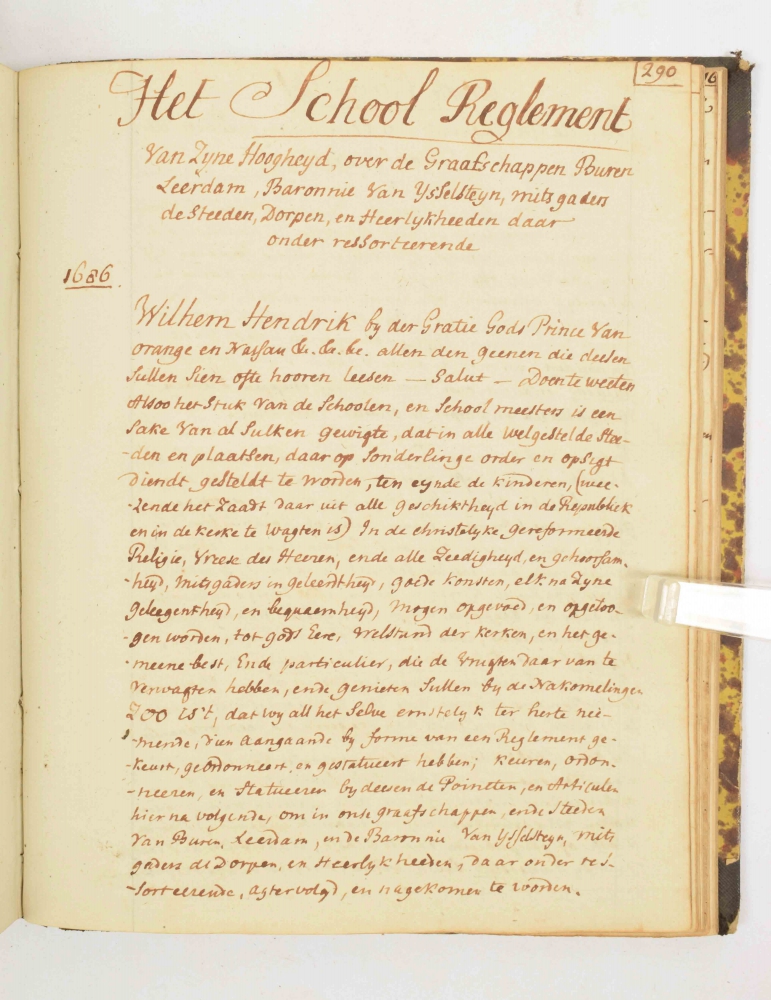 290
Het School Reglement
Van Zyne Hoogheyd, over de Graafschappen Buren
Leerdam, Baronnie Van Ysselsteyn, mitsgaders
de Steeden, Dorpen, en Heerlykheeden daar
onder ressorteerende
1686.
Wilhem Hendrik by der Gratie Gods Prince Van
orange en Nassau &. &. &c. allen den geenen die deesen
Sullen Sien ofte hooren leesen — Salut — Doen te weeten
Alsoo het Stuk Van de Schoolen, en School meesters is een
Sake Van al Sulken gewigte, dat in alle welgestelde Stee-
-den en plaatsen, daar op Sonderlinge order en opsigt
diendt gesteldt te worden, ten eynde de kinderen, (wee-
-zende het Zaadt daar uit alle geschiktheyd in de Republiek
en in de kerke te wagten is) In de christelyke gereformeerde
Religie, Vreese des Heeren, ende alle Zeedigheyd, en gehoorsam-
-heyd, mitsgaders in geleerdtheyd, goede konsten, elk na Zyne
geleegentheyd, en bequaemheyd, mogen opgevoed, en opgetoo-
-gen worden, tot gods Eere, welstand der kerken, en het ge-
-meene best, Ende particulier, die de Vrugten daar van te
verwagten hebben, ende genieten Sullen by de Nakomelingen
ZOO is't, dat wy all het Selve ernstelyk ter herte nee-
-mende, dien aangaande by forme van een Reglement ge-
-keurt, geordonneert, en gestatueert hebben; keuren, ordon-
-neeren, en Statueeren by deesen de Poincten, en Articulen
hier na volgende, om in onse graafschappen, ende Steeden
Van Buren, Leerdam, en de Baronnie Van Ysselsteyn, mits
gaders de Dorpen, en Heerlykheeden, daar onder res-
-sorteerende, agtervolgd, en nagekomen te worden.